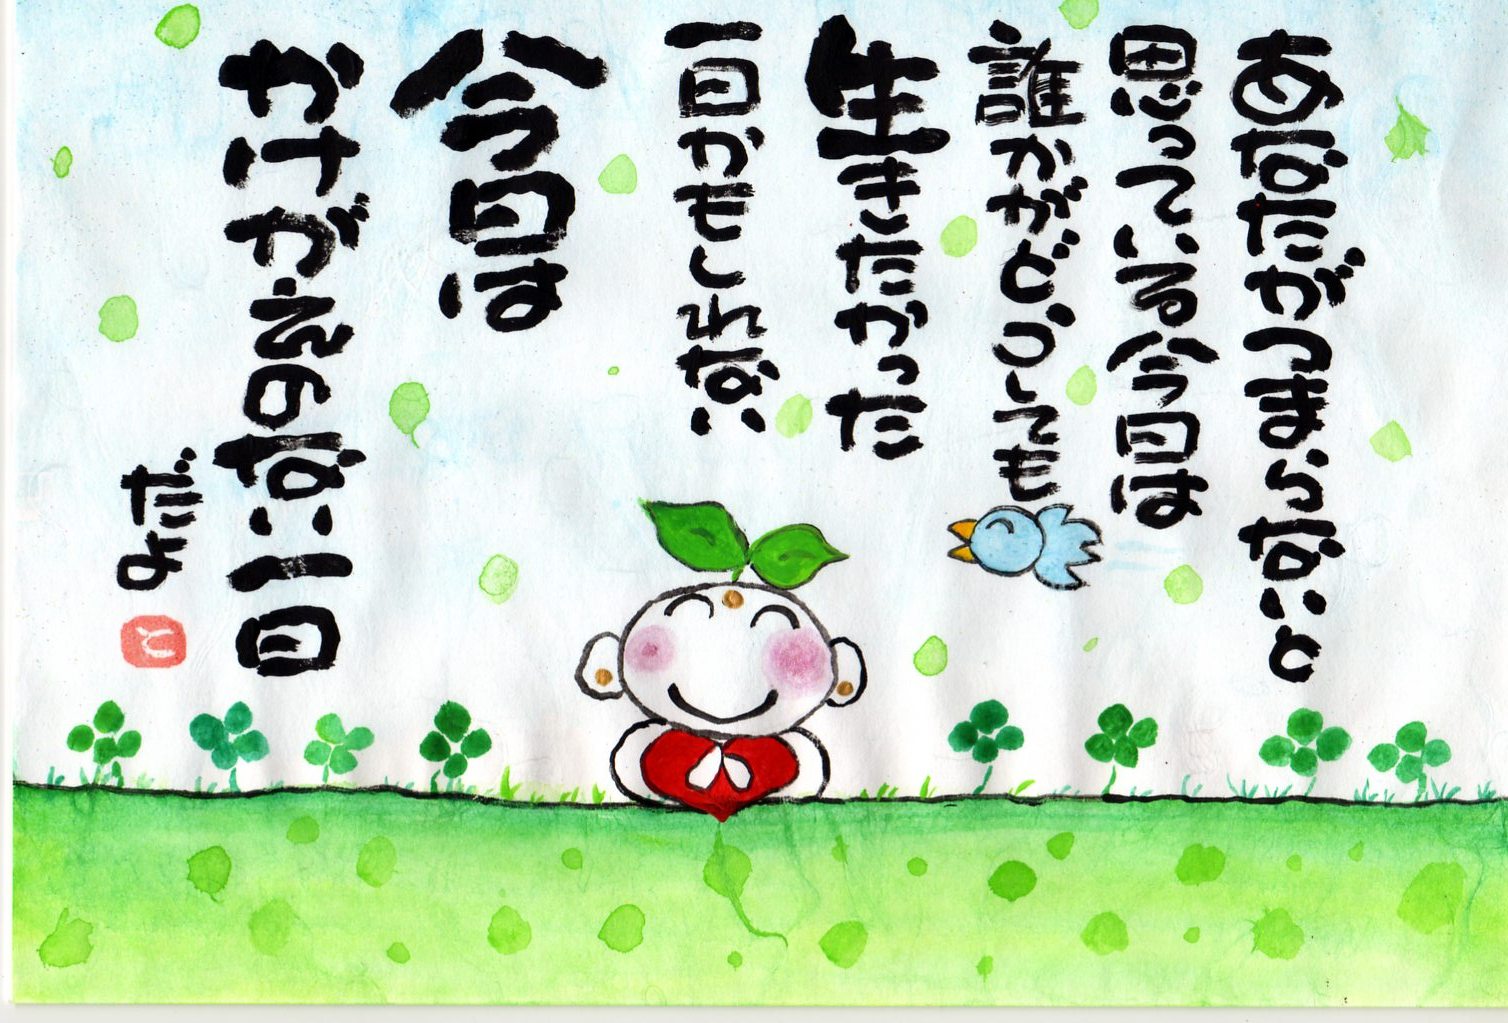 あなたがつまらないと
思っている今日は
誰かがどうしても
生きたかった
一日かもしれない
今日は
かけがえのない一日
だよ
と